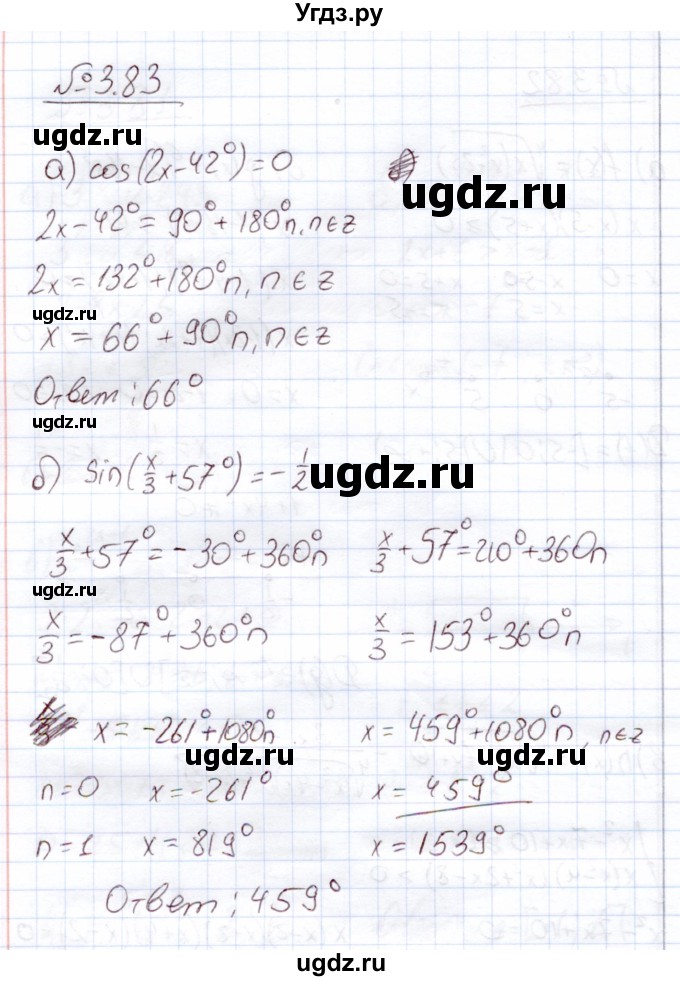 Угдз.ру
№3.83
ugdz.ru
а) cos(2x-42°)=0
ugdz.ru
2x-42°=90°+180°n, n∈z
2x=132°+180°n, n∈z
ugdz.ru
x=66°+90°n, n∈z
Ответ: 66°
ugdz.ru
б) sin(x/3+57°)=-1/2
ugdz.ru
x/3+57°=-30°+360°n x/3+57°=210°+360n
ugdz.ru
x/3=-87°+360°n x/3=153°+360°n
x=-261°+1080°n x=459°+1080°n, n∈z
ugdz.ru ugdz.ru
n=0 x=-261° x=459°
n=1 x=819° x=1539°
Ответ: 459°
ugdz.ru
ugdz.ru